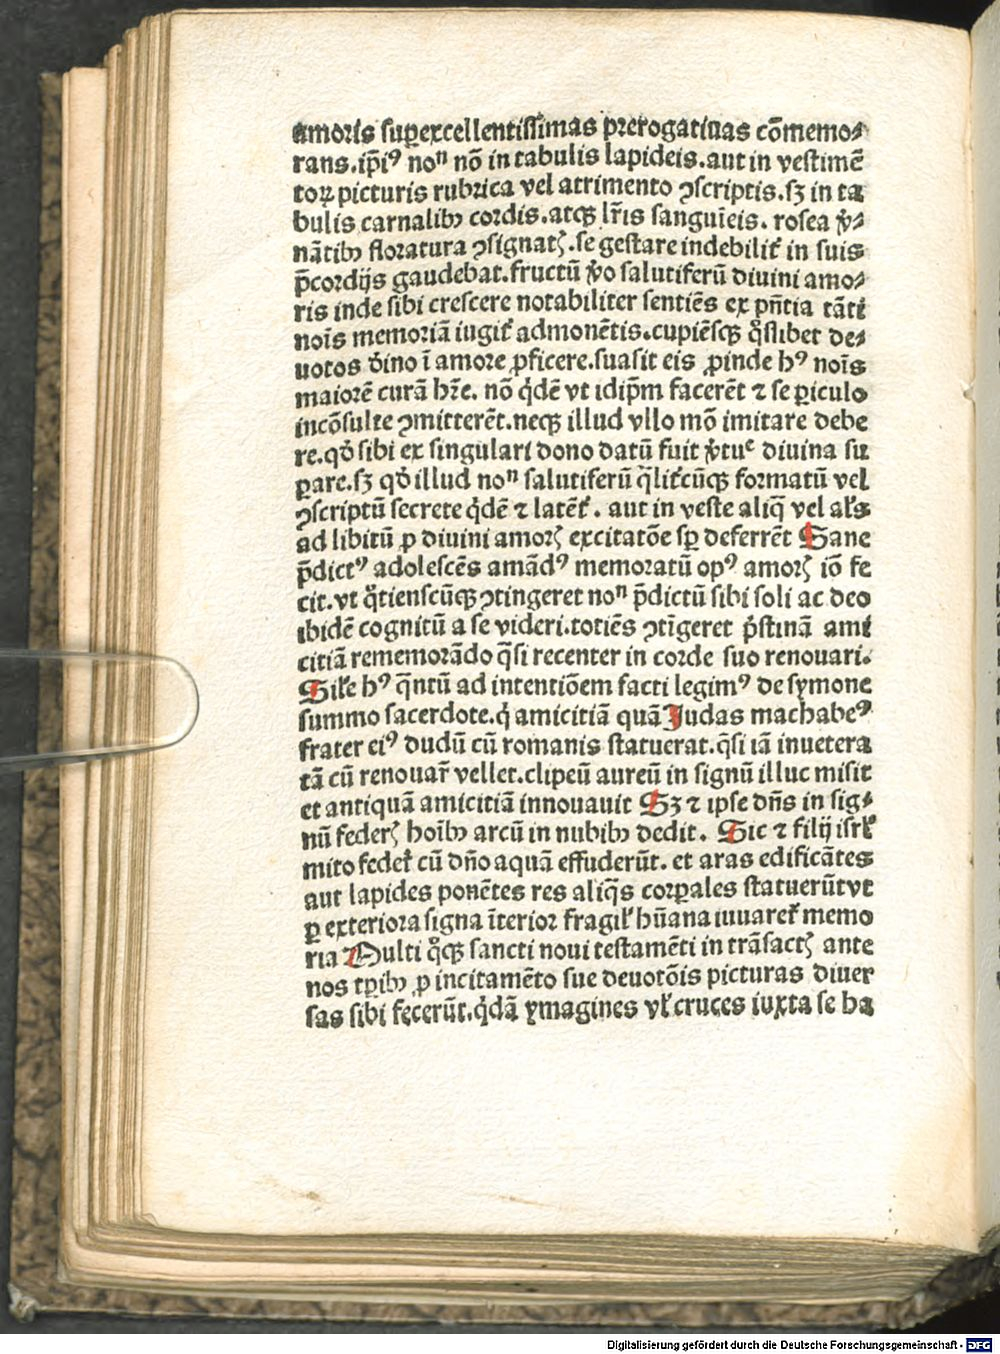 amoris suꝑexcellentissimas prerogatiuas cōmemo⸗
rans.ip̄i⁹ noⁿ nō in tabulis lapideis.aut in vestimē
toꝝ picturis rubrica vel atrimento ꝯscriptis.sꝫ in ta
bulis carnalibꝫ cordis.atqꝫ lr̄is sanguīeis. rosea v̓⸗
nātibꝫ floratura ꝯsignatꝭ.se gestare indebilit̓ in suis
p̄cordijs gaudebat.fructū v̓o salutiferū diuini amo⸗
ris inde sibi crescere notabiliter sentiēs ex pn̄tia tāti
noīs memoriā iugit̓ admonētis.cupiēsqꝫ q̊slibet de⸗
uotos d̓ino ī amore ꝓficere.suasit eis ꝓinde h⁹ noīs
maiorē curā hr̄e. nō q̓dē vt idip̄m facerēt ⁊ se ꝑiculo
incōsulte ꝯmitterēt.neqꝫ illud vllo mō imitare debe
re.qd̓ sibi ex singulari dono datū fuit v̓tuᵉ diuina su
ꝑare.sꝫ qd̓ illud noⁿ salutiferū q̄lit̓cūqꝫ formatū vel
ꝯscriptū secrete q̓dē ⁊ latēt̓. aut in veste aliq̄ vel al̓s
ad libitū ꝓ diuini amorꝭ excitatōe sꝑ deferrēt Sane
p̄dict⁹ adolescēs amād⁹ memoratū op⁹ amorꝭ iō fe
cit.vt q̊tienscūqꝫ ꝯtingeret noⁿ p̄dictū sibi soli ac deo
ibidē cognitū a se videri.totiēs ꝯtīgeret p̓stinā ami
citiā rememorādo q̄si recenter in corde suo renouari.
Sil̓e h⁹ q̄ntū ad intentiōem facti legim⁹ de symone
summo sacerdote.q̓ amicitiā quā Judas machabe⁹
frater ei⁹ dudū cū romanis statuerat.q̄si iā inuetera
tā cū renouar̄ vellet.clipeū aureū in signū illuc misit
et antiquā amicitiā innouauit Sꝫ ⁊ ipse dn̄s in sig⸗
nū federꝭ hoībꝫ arcū in nubibꝫ dedit. Sic ⁊ filij isrl̓
mito fedet̓ cū dn̄o aquā effuderūt. et aras edificātes
aut lapides ponētes res aliq̄s corꝑales statuerūt vt
ꝑ exteriora signa īterior fragil̓ hūana iuuaret̓ memo
ria Multi q̊qꝫ sancti noui testamēti in trāsactꝭ ante
nos tꝑibꝫ ꝓ incitamēto sue deuotōis picturas diuer
sas sibi fecerūt.q̓dā ymagines vl̓ cruces iuxta se ha
Digitalisierung gefördert durch die Deutsche Forschungsgemeinschaft - DFG